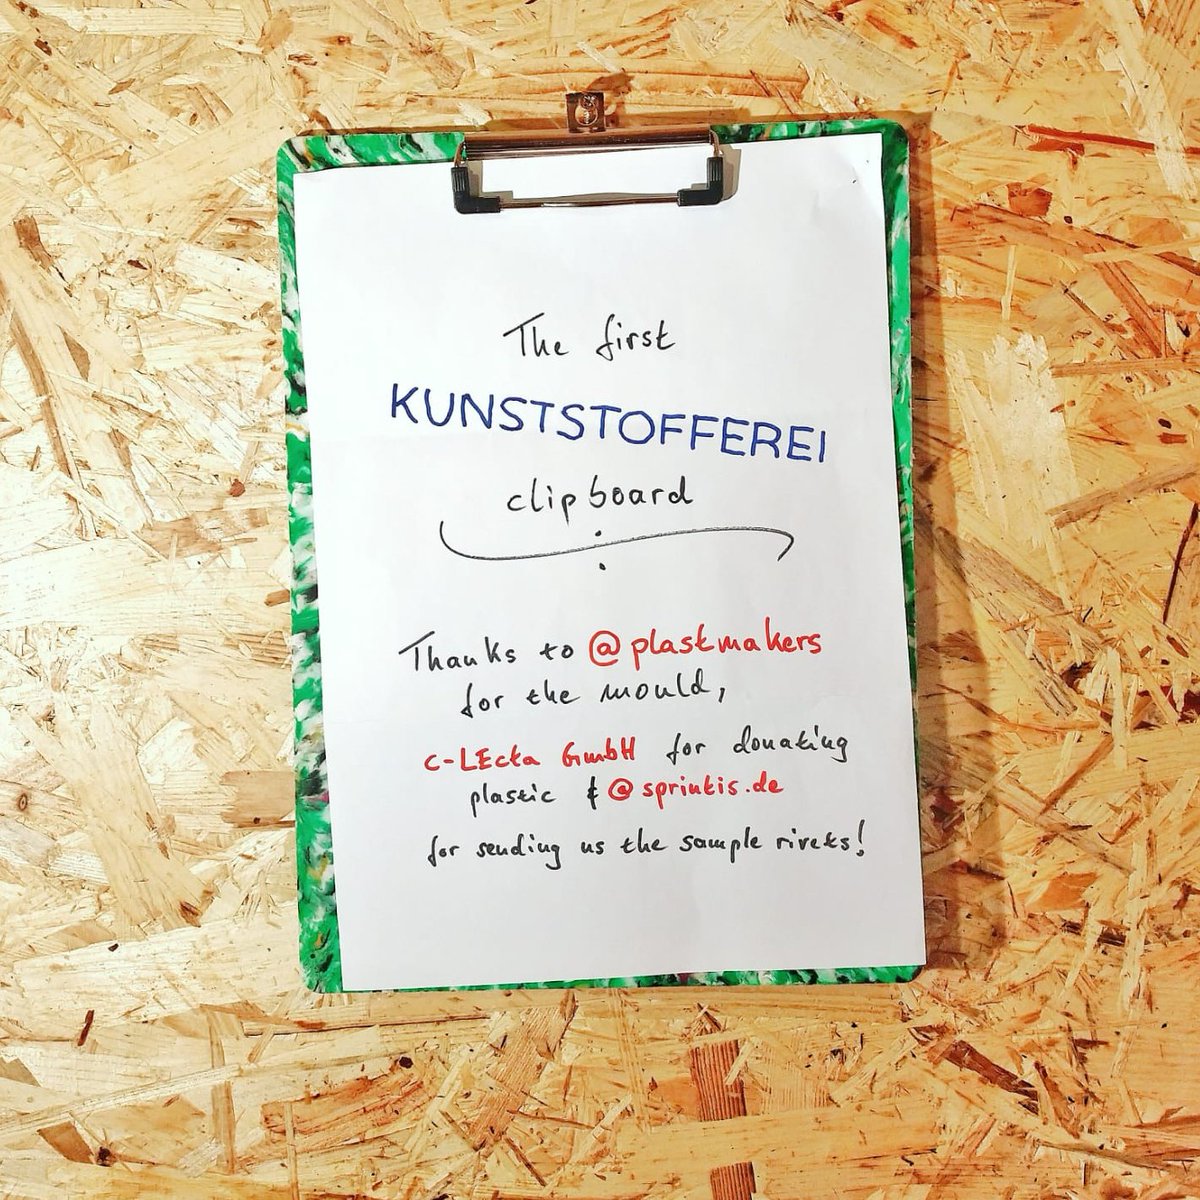 The first
KUNSTSTOFFEREI
clipboard
Thanks to @plastmakers
for the mould,
c-LEcta GmbH for donating
plastic & @sprintis.de
for sending us the sample rivets!